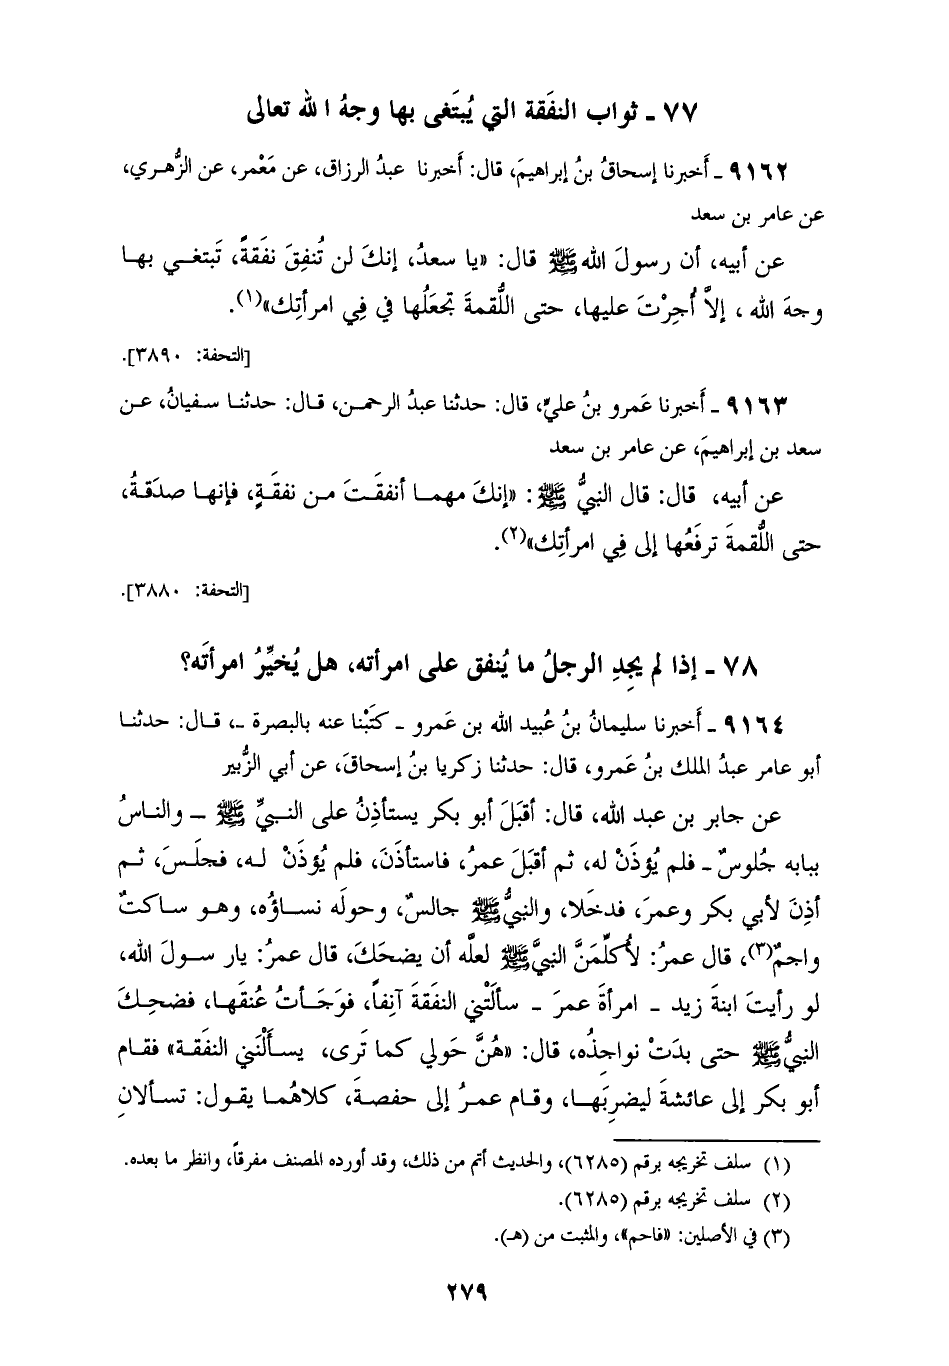 ٧٧ ـ ثواب النفَقة التي يُبتَغى بها وجهُ الله تعالى
٩١٦٢ ـ أَخبرنا إسحاقُ بنُ إبراهيمَ، قال: أَخبرنا عبدُ الرزاق، عن مَعْمر، عن الزُّهـري،
عن عامر بن سعد
عن أبيه، أن رسولَ الله ﷺ قال: «يا سعدُ، إنكَ لن تُنفِقَ نفَقةً، تَبتغـي بهـا
وجهَ الله ، إلاَّ أُجِرْتَ عليها، حتى اللُّقمةَ تجعَلُها في فِي امرأتِك»(١).
[التحفة: ٣٨٩٠].
٩١٦٣ ـ أَخبرنا عَمرو بنُ عليٍّ، قال: حدثنا عبدُ الرحمـن، قـال: حدثنـا سـفيانُ، عـن
سعد بن إبراهيمَ، عن عامر بن سعد
عن أبيه، قال: قال النبيُّ ﷺ: «إنكَ مهمـا أنفقَـتَ مـن نفقَـةٍ، فإنهـا صدَقـةُ،
حتى اللُّقمةَ ترفَعُها إلى فِي امرأتِك»(٢).
[التحفة: ٣٨٨٠].
٧٨ ـ إذا لم يجِدِ الرجلُ ما يُنفق على امرأته، هل يُخيِّرُ امرأتَه؟
٩١٦٤ ـ أَخبرنا سليمانُ بنُ عُبيد الله بن عَمرو ـ كتَبْنا عنه بالبصرة ـ، قـال: حدثنـا
أبو عامر عبدُ الملك بنُ عَمرو، قال: حدثنا زكريا بنُ إسحاقَ، عن أبي الزُّبير
عن جابر بن عبد الله، قال: أقبَلَ أبو بكر يستأذِنُ على النـبيِّ ﷺ ـ والنـاسُ
ببابه جُلوسٌ ـ فلم يُؤذَنْ له، ثم أقبَلَ عمرُ، فاستأذَنَ، فلم يُؤذَنْ لـه، فجلَـسَ، ثـم
أذِنَ لأبي بكر وعمرَ، فدخَلا، والنبيُّ ﷺ جالسٌ، وحولَه نسـاؤُه، وهـو سـاكتٌ
واجمٌ(٣)، قال عمرُ: لأُكلِّمَنَّ النبيَّ ﷺ لعلَّه أن يضحَكَ، قال عمرُ: يار سـولَ الله،
لو رأيتَ ابنةَ زيد ـ امرأةَ عمرَ ـ سألَتْني النفقَةَ آنِفاً، فوَجَـأتُ عُنقَهـا، فضحِـكَ
النبيُّ ﷺ حتى بدَتْ نواجِذُه، قال: «هُنَّ حَولي كما تَرى، يسـألْنَني النفقَـة» فقـام
أبو بكر إلى عائشةَ ليضرِبَهـا، وقـام عمـرُ إلى حفصـةَ، كلاهُمـا يقـول: تسـألانِ
(١) سلف تخريجه برقم (٦٢٨٥)، والحديث أتم من ذلك، وقد أورده المصنف مفرقاً، وانظر ما بعده.
(٢) سلف تخريجه برقم (٦٢٨٥).
(٣) في الأصلين: «فاحم»، والمثبت من (هـ).
٢٧٩